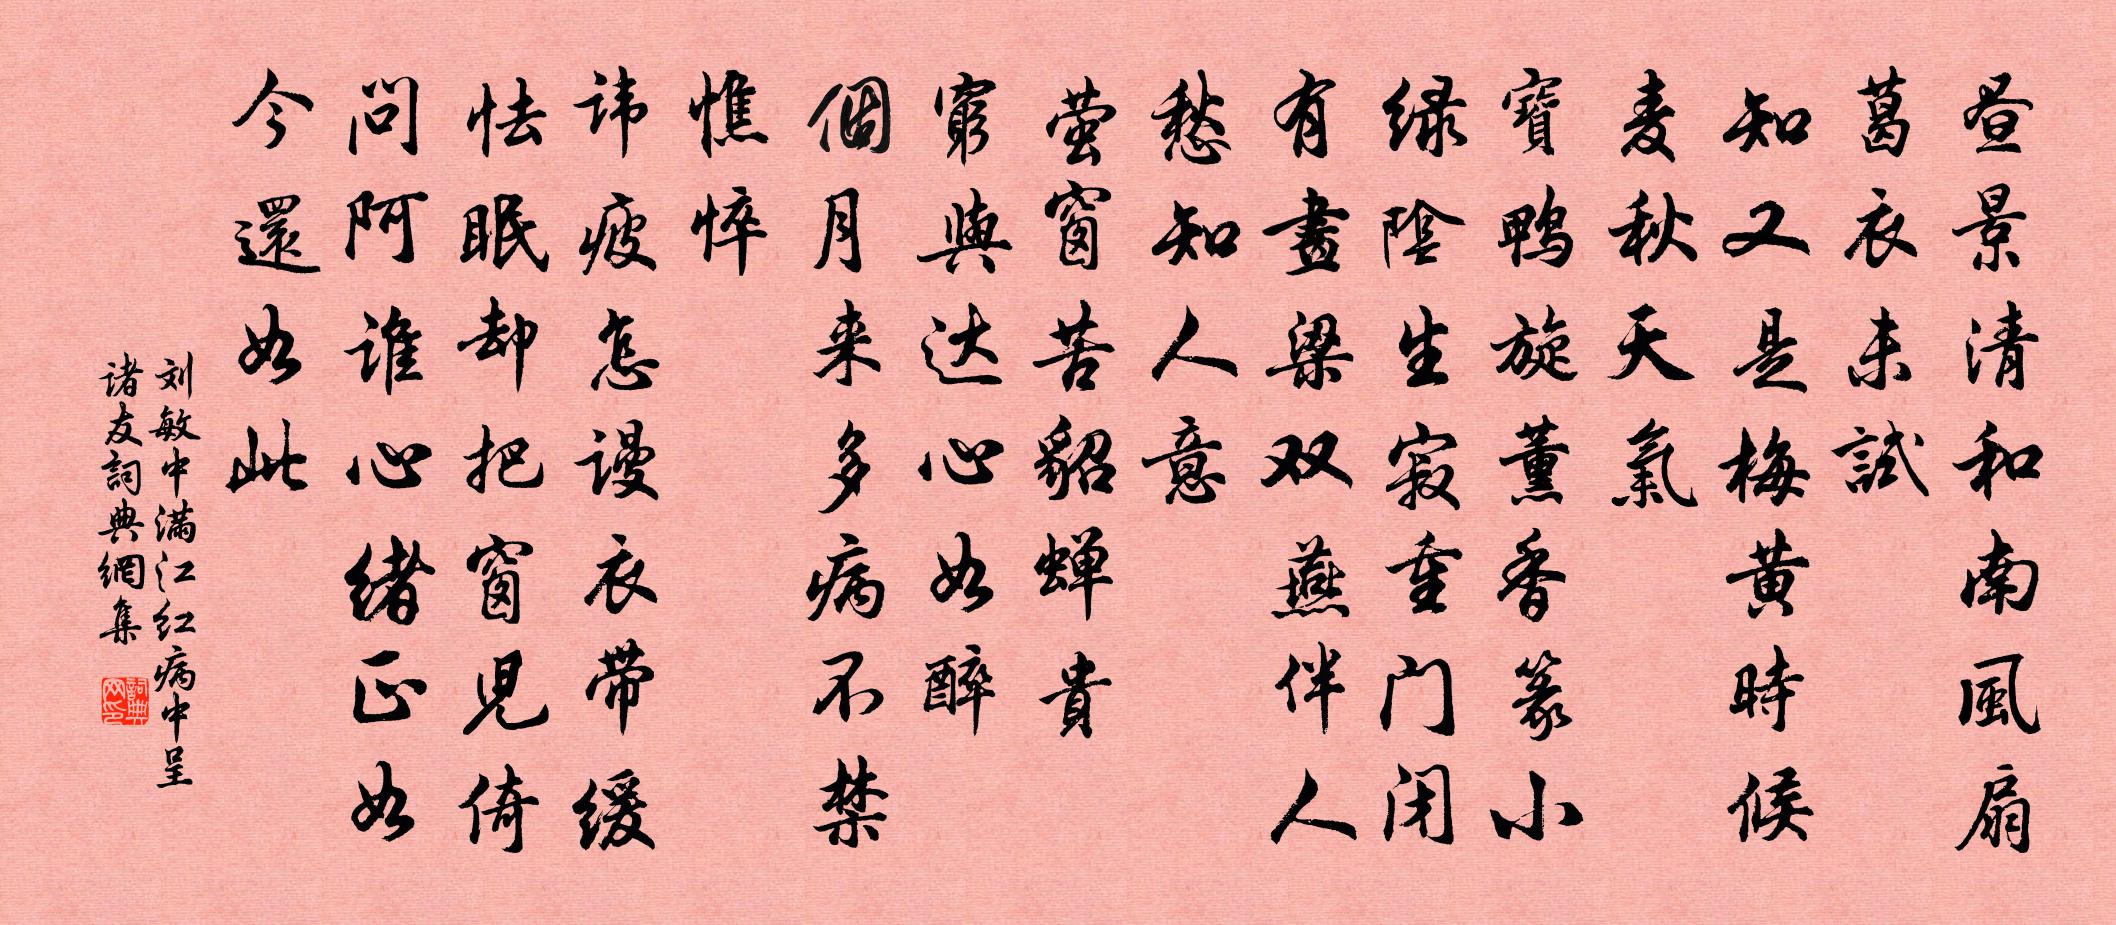 昼景清和南風扇
葛衣未試
知又是梅黄時候
麦秋天氣
寶鸭旋薰香篆小
緑陰生寂重门闭
有畫梁双燕伴人
愁知人意
萤窗苦貂蝉貴
窮與达心如醉
個月来多病不禁
憔悴
讳疲怎谩衣带缓
怯眠却把窗児倚
问阿谁心緒正如
今還如此
刘敏中满江红病中呈
诸友詞典網集
詞典网印